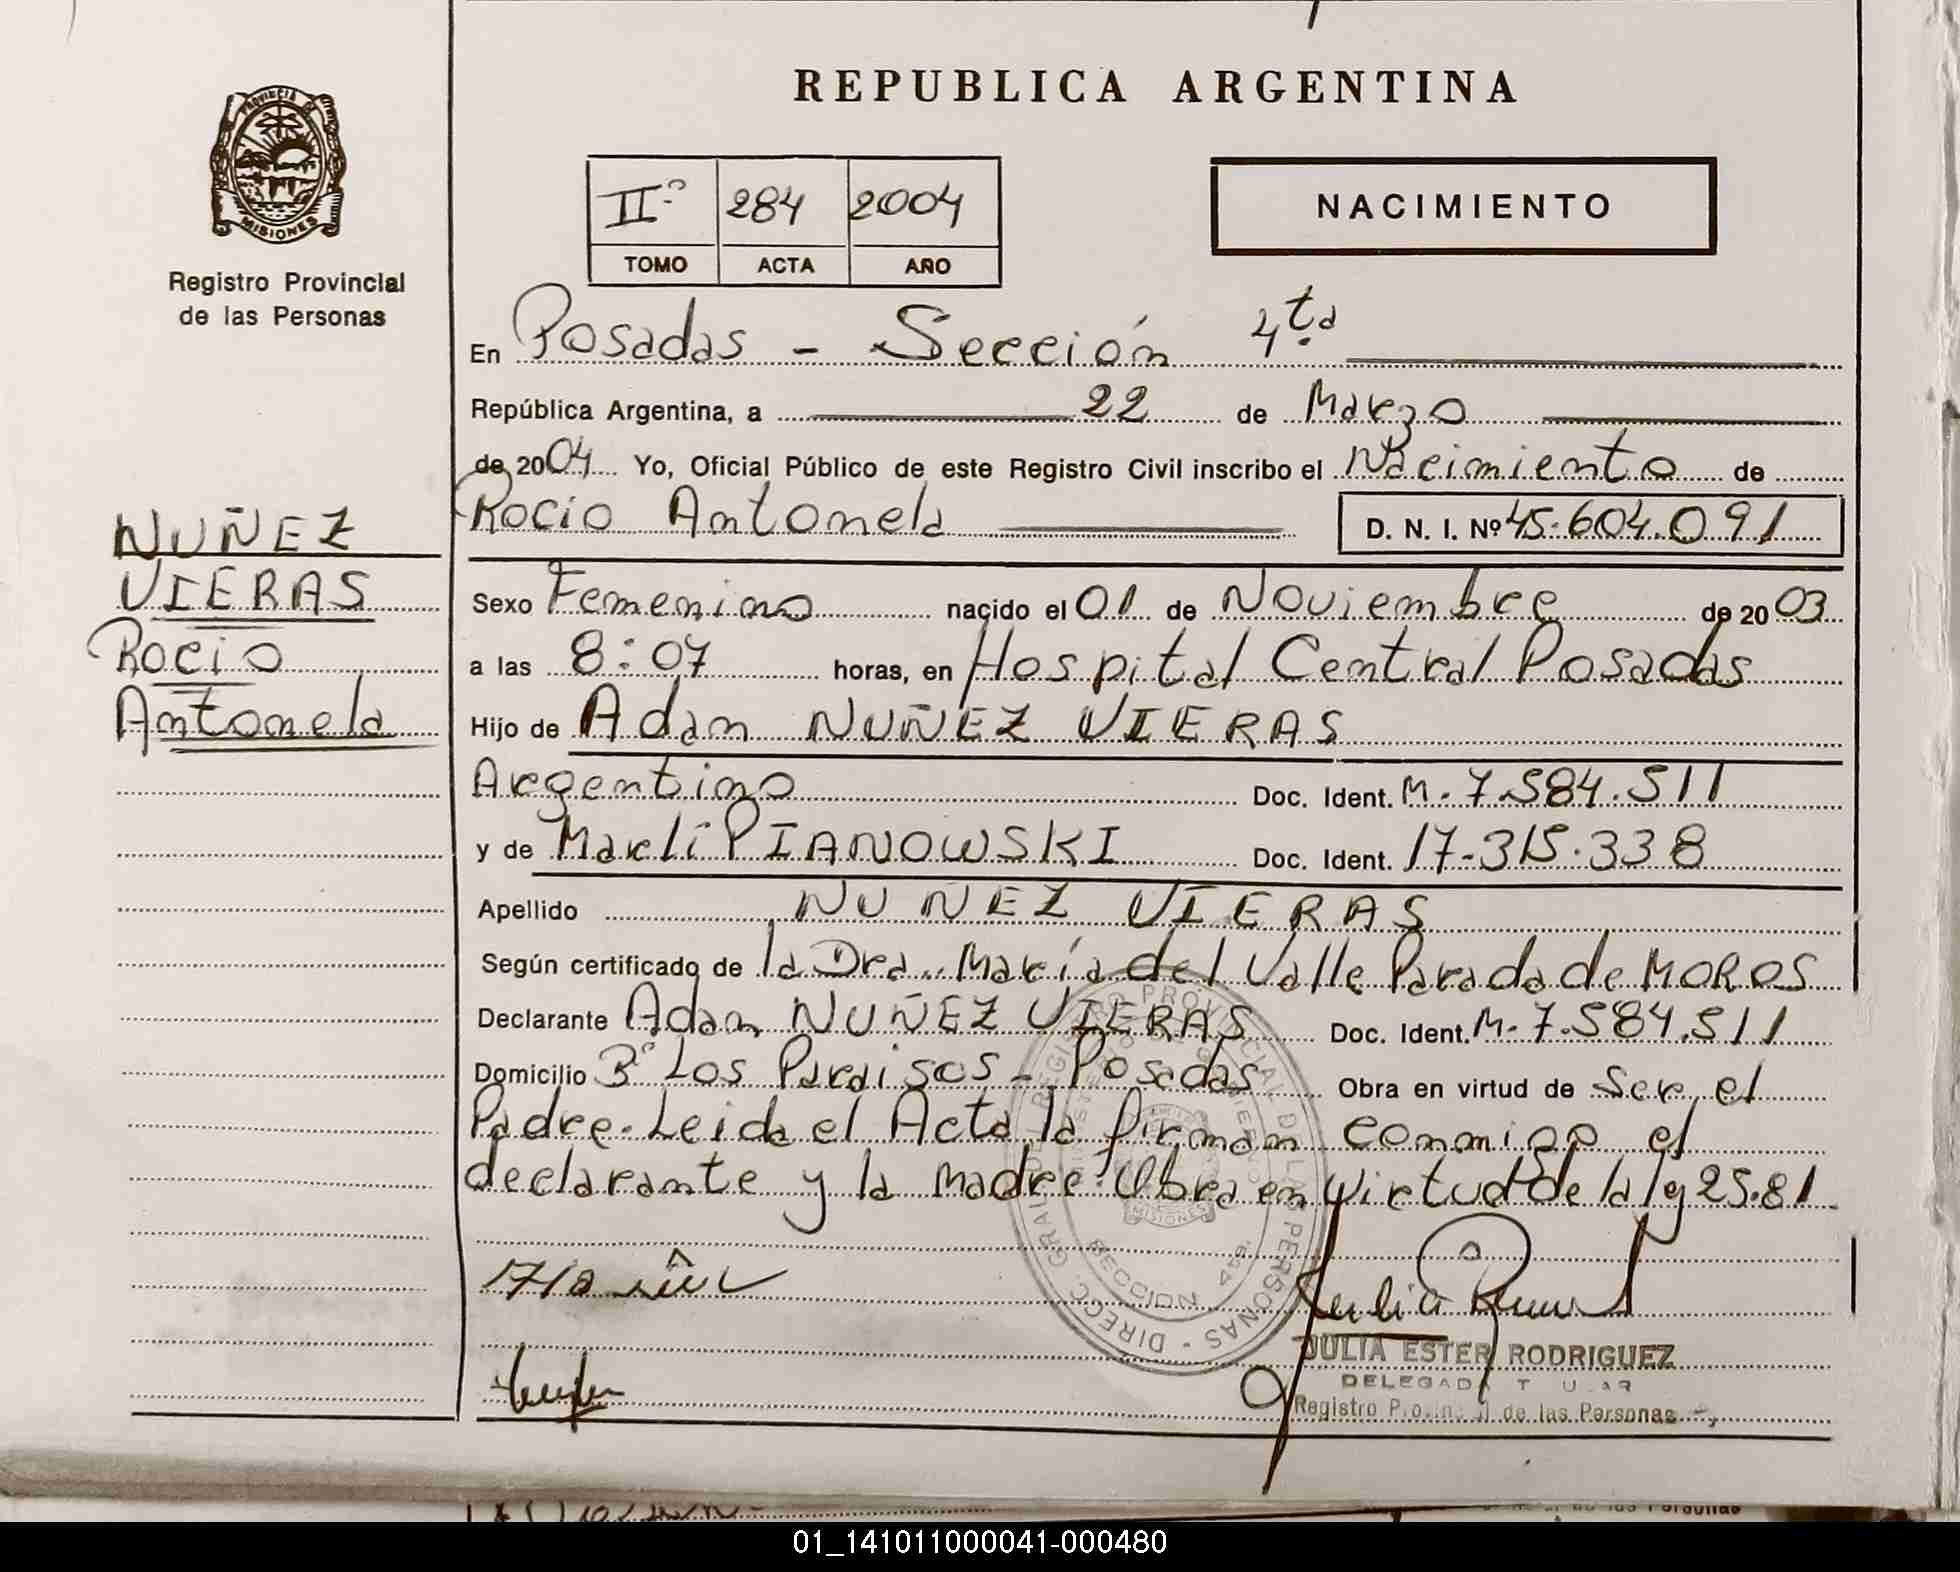 REPUBLICA ARGENTINA
PROVINCIA DE
MISIONES
Registro Provincial
de las Personas
IIº 284 2004
TOMO ACTA AÑO
NACIMIENTO
En Posadas - Sección 4ta
República Argentina, a 22 de Marzo
de 2004 Yo, Oficial Público de este Registro Civil inscribo el Nacimiento de
Rocio Antonela D. N. I. Nº 45.604.091
NUÑEZ
VIERAS
Rocio
Antonela
Sexo Femenino nacido el 01 de Noviembre de 2003
a las 8:07 horas, en Hospital Central Posadas
Hijo de Adan NUÑEZ VIERAS
Argentino Doc. Ident. M. 7.584.511
y de Marli PIANOWSKI Doc. Ident. 17.315.338
Apellido NUÑEZ VIERAS
Según certificado de la Dra. María del Valle Parada de MOROS
Declarante Adan NUÑEZ VIERAS Doc. Ident. M. 7.584.511
Domicilio Bº Los Paraisos - Posadas Obra en virtud de Ser el
Padre. Leida el Acta la firman conmigo el
declarante y la madre. Obra en virtud de la ley 25.81
DIRECC. GRAL. DEL REGISTRO PROVINCIAL DE LAS PERSONAS
MINISTERIO DE GOBIERNO
MISIONES
SECCION 4ta.
JULIA ESTER RODRIGUEZ
DELEGADA TITULAR
Registro Provincial de las Personas
01_141011000041-000480